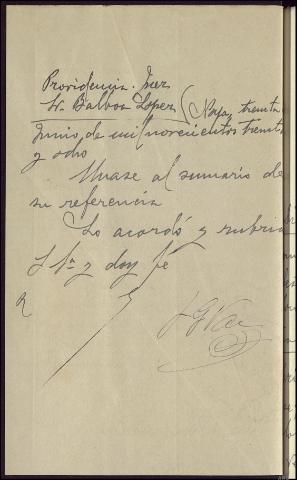 Providencia. Juez
Sr. Balboa Lopez (
treinta
Junio, de mil novecientos treinta
y ocho
Unase al sumario de
su referencia
Lo acordó y rubrica
S Sª y doy fé